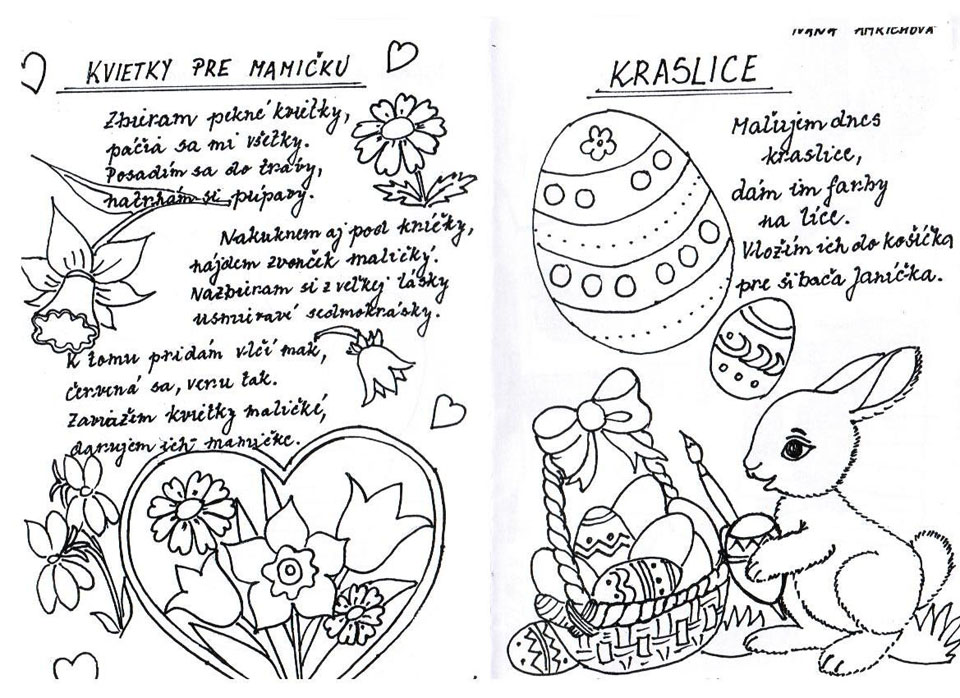 KVIETKY PRE MAMIČKU
Zbieram pekné kvietky,
páčia sa mi všetky.
Posadím sa do trávy,
natrhám si púpavy.
Nakuknem aj pod kríčky,
nájdem zvonček maličký.
Nazbieram si z veľkej lásky
usmievavé sedmokrásky.
K tomu pridám vlčí mak,
červená sa, veru tak.
Zaviažem kvietky maličké,
darujem ich mamičke.
IVANA AMRICHOVÁ
KRASLICE
Maľujem dnes
kraslice,
dám im farby
na líce.
Vložím ich do košíčka
pre šibača Janíčka.